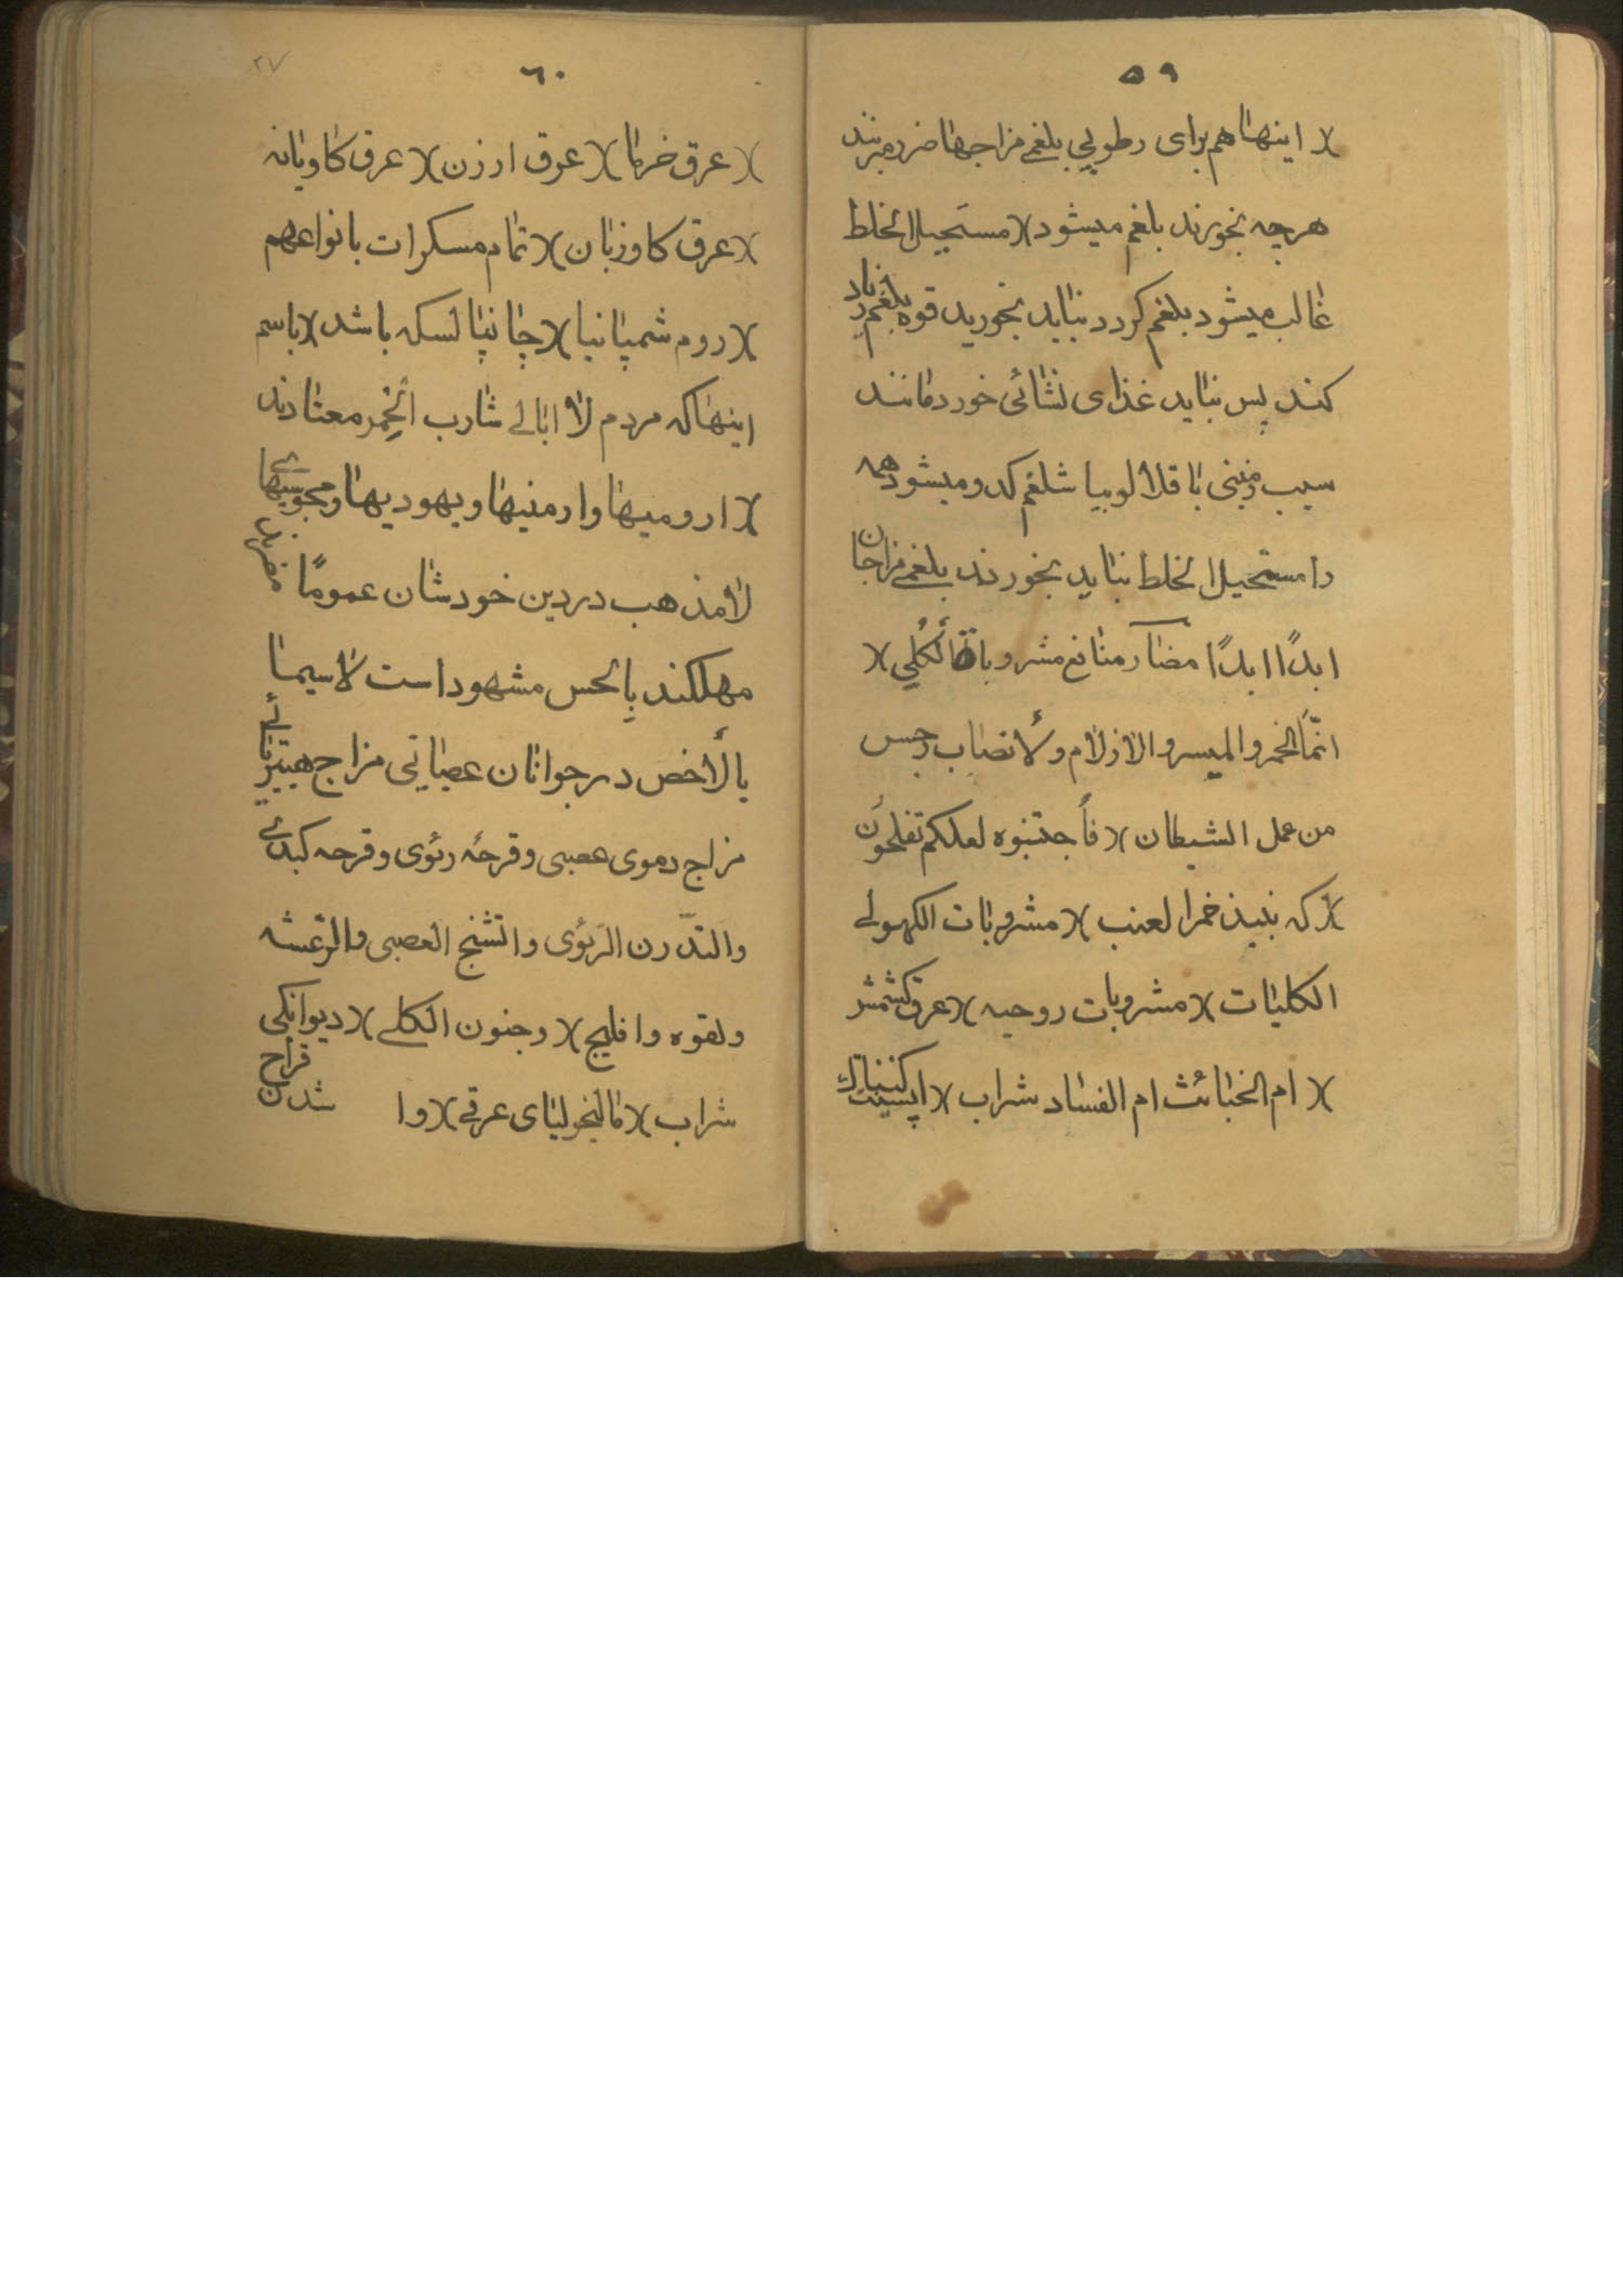 ٥٩
)( اینها هم برای رطوبی بلغمی مزاجها ضرر میرساند
هرچه بخورند بلغم میشود )( مستحیل الخلط
غالب میشود بلغم کردد نباید بخورید قوه بلغم زیاد
کند پس نباید غذای نشائی خورد مانند
سیب زمینی باقلا لوبیا شلغم کدو میشود همه
را مستحیل الخلط نباید بخورند بلغمی مزاجان
ابدًا ابدًا مضار منافع مشروبات الکلی )(
انّما الخمر والمیسر والازلام ولأنصاب رجس
من عمل الشیطان )( فأجتنبوه لعلکم تفلحون
)( که نبیذ خمر العنب )( مشروبات الکهولی
الکلیات )( مشروبات روحیه )( عرق کشمش
)( ام الخبائث ام الفساد شراب )(
٦٠
٢٧
)( عرق خرما )( عرق ارزن )( عرق کاویانه
)( عرق کاوزبان )( تمام مسکرات بانواعهم
)( روم شمپانیا )( چانپا لسکه باشد )( باسم
اینها که مردم لا ابالی شارب الخمر معتادند
)( ارومیها وارمنیها ویهودیها ومجوسیهای
لامذهب در دین خودشان عمومًا مضرند
مهلکند بالحس مشهود است لاسیما
بالأخص در جوانان عصبانی مزاج هیتریائی
مزاج دموی عصبی وقرحۀ رئوی وقرحه کبدی
والتدّرن الرئوی واتشنج العصبی والرّعشه
ولقوه وافلیج )( وجنون الکلی )( دیوانکی
شراب )( مالیخولیای عرقی )( وا قراح شدن